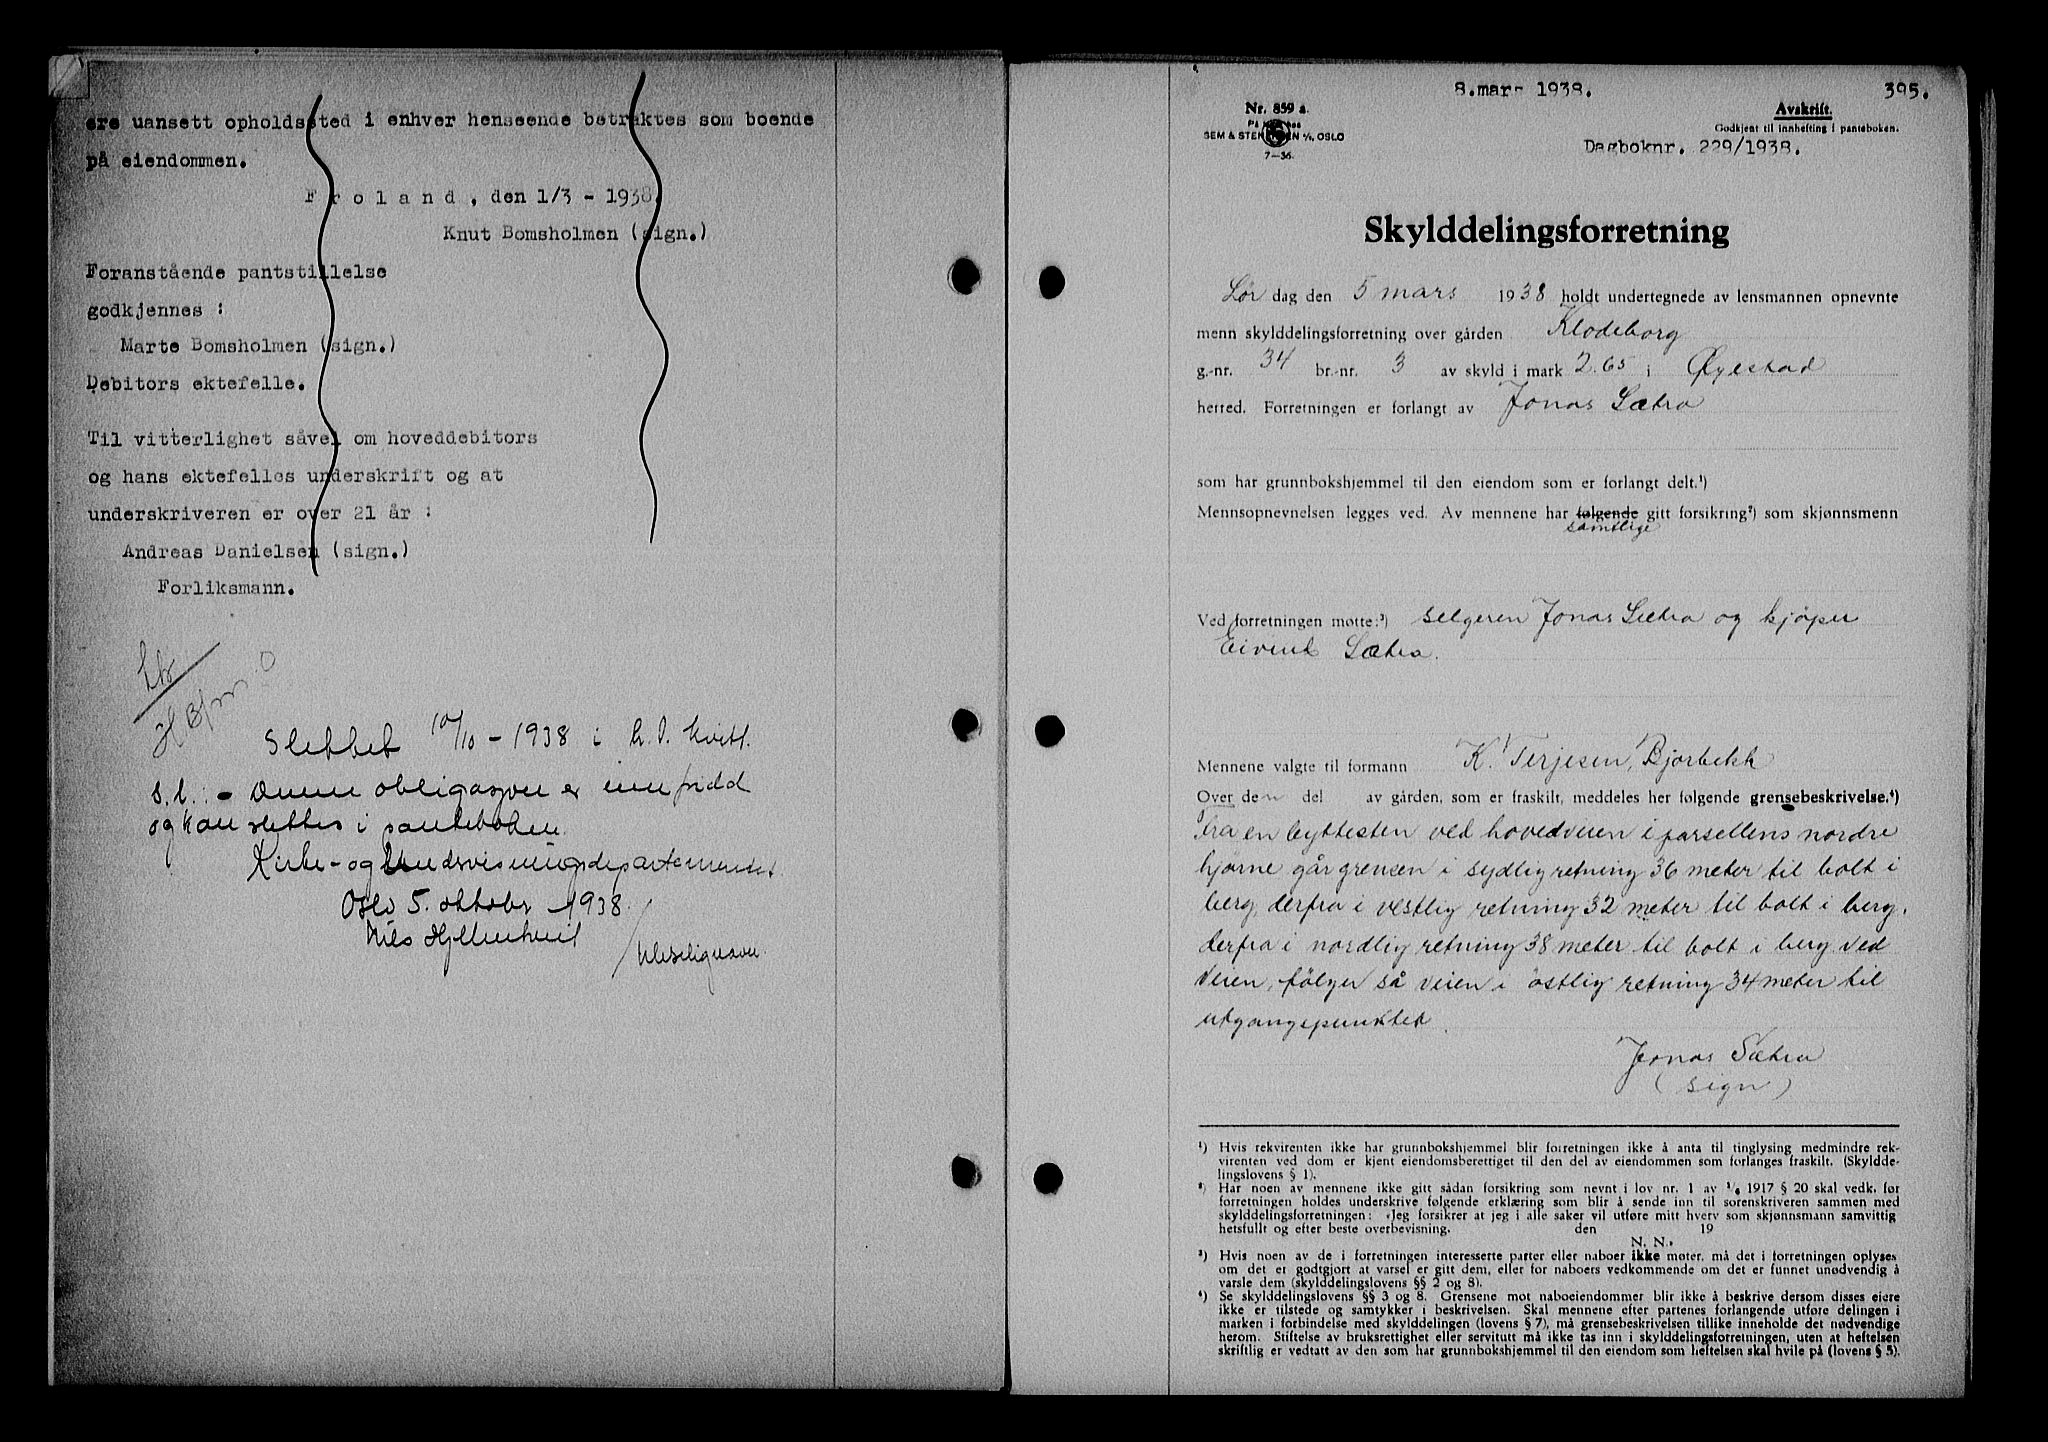 ere uansett opholdssted i enhver henseende betraktes som boende
på eiendommen.
Froland, den 1/3 - 1938.
Knut Bomsholmen (sign.)
Foranstående pantstillelse
godkjennes :
Marte Bomsholmen (sign.)
Debitors ektefelle.
Til vitterlighet såvel om hoveddebitors
og hans ektefelles underskrift og at
underskriveren er over 21 år :
Andreas Danielsen (sign.)
Forliksmann.
Slettet 10/10 - 1938 i h. t. kvitt.
s. l. : - Denne obligasjon er innfridd
og kan slettes i panteboken.
Kirke- og Undervisningsdepartementet
Oslo 5. oktober 1938.
Nils Hjelmtveit
8. mars 1938.
395.
Nr. 859 a.
Avskrift.
SEM & STENERSEN A/S, OSLO
Godkjent til innhefting i panteboken.
7-36.
Dagboknr. 229/1938.
Skylddelingsforretning
Lør dag den 5 mars 1938 holdt undertegnede av lensmannen opnevnte
menn skylddelingsforretning over gården Klodeborg
g.-nr. 34 br.-nr. 3 av skyld i mark 2.65 i Øyestad
herred. Forretningen er forlangt av Jonas Sætra
som har grunnbokshjemmel til den eiendom som er forlangt delt.¹)
Mennsopnevnelsen legges ved. Av mennene har følgende gitt forsikring²) som skjønnsmenn
samtlige
Ved forretningen møtte:³) selgeren Jonas Sætra og kjøper
Eivind Sætra.
Mennene valgte til formann K. Terjesen, Bjorbekk
Over den del av gården, som er fraskilt, meddeles her følgende grensebeskrivelse.⁴)
Fra en byttesten ved hovedveien i parsellens nordre
hjørne går grensen i sydlig retning 36 meter til bolt i
berg, derfra i vestlig retning 32 meter til bolt i berg.
derfra i nordlig retning 38 meter til bolt i berg ved
veien, følger så veien i østlig retning 34 meter til
utgangspunktet.
Jonas Sætra
(sign)
¹) Hvis rekvirenten ikke har grunnbokshjemmel blir forretningen ikke å anta til tinglysing medmindre rek-
virenten ved dom er kjent eiendomsberettiget til den del av eiendommen som forlanges fraskilt. (Skyldde-
lingslovens § 1).
²) Har noen av mennene ikke gitt sådan forsikring som nevnt i lov nr. 1 av 1/6 1917 § 20 skal vedk. før
forretningen holdes underskrive følgende erklæring som blir å sende inn til sorenskriveren sammen med
skylddelingsforretningen: «Jeg forsikrer at jeg i alle saker vil utføre mitt hverv som skjønnsmann samvittig
hetsfullt og efter beste overbevisning. den 19
N. N.»
³) Hvis noen av de i forretningen interesserte parter eller naboer ikke møter, må det i forretningen oplyses
om det er godtgjort at varsel er gitt dem, eller for naboers vedkommende om det er funnet unødvendig å
varsle dem (skylddelingslovens §§ 2 og 8).
⁴) Se skylddelingslovens §§ 3 og 8. Grensene mot naboeiendommer blir ikke å beskrive dersom disses eiere
ikke er tilstede og samtykker i beskrivelsen. Skal mennene efter partenes forlangende utføre delingen i
marken i forbindelse med skylddelingen (lovens § 7), må grensebeskrivelsen tillike inneholde det nødvendige
herom. Stiftelse av bruksrettighet eller servitutt må ikke tas inn i skylddelingsforretningen, uten at heftelsen
skriftlig er vedtatt av den som har grunnbokshjemmel til den eiendom som heftelsen skal hvile på (lovens § 5).